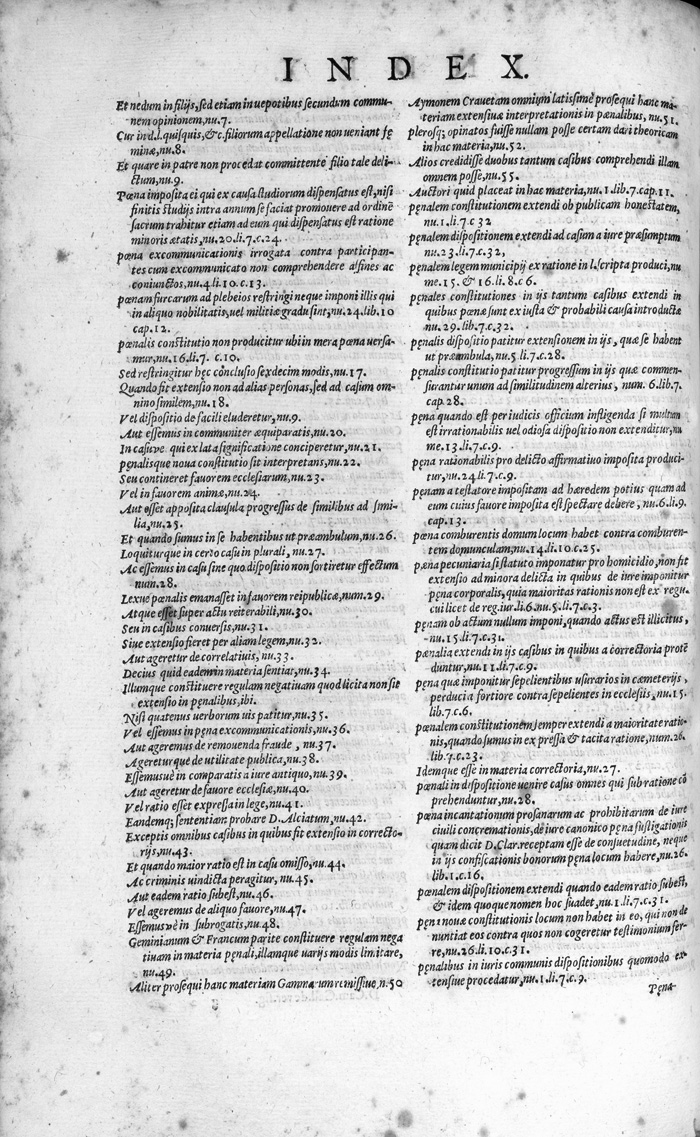 INDEX.
Et nedum in filijs, sed etiam in uepotibus secundum commu-
nem opinionem, nu.7.
Cur in d.l. quisquis, & c. filiorum appellatione non ueniant fę
minæ, nu.8.
Et quare in patre non procedat committente filio tale deli-
ctum, nu.9.
Pœna imposita ei qui ex causa studiorum dispensatus est, nisi
finitis studijs intra annum se faciat promouere ad ordinē
sacrum trahitur etiam ad eum qui dispensatus est ratione
minoris ætatis, nu.20.li.7.c.24.
pœna excommunicationis irrogata contra participan-
tes cum excommunicato non comprehendere affines ac
coniunctos, nu.4.li.10.c.13.
pœnam furcarum ad plebeios restringi neque imponi illis qui
in aliquo nobilitatis, uel militiæ gradu sint, nu.24.lib.10
cap.12.
pœnalis constitutio non producitur ubi in mera pœna uersa-
mur, nu.16.li.7. c.10.
Sed restringitur hęc conclusio sexdecim modis, nu.17.
Quando fit extensio non ad alias personas, sed ad casum om-
nino similem, nu.18.
Vel dispositio de facili eluderetur, nu.9.
Aut essemus in communiter æquiparatis, nu.20.
In casuve qui ex lata significatione conciperetur, nu.21.
pęnalisque noua constitutio sit interpretans, nu.22.
Seu contineret fauorem ecclesiarum, nu.23.
Vel in fauorem animæ, nu.24.
Aut esset apposita clausula progressus de similibus ad simi-
lia, nu.25.
Et quando sumus in se habentibus ut præambulum, nu.26.
Loquiturque in certo casu in plurali, nu.27.
Ac essemus in casu sine quo dispositio non sortiretur effectum
num.28.
Lexue pœnalis emanasset in fauorem reipublicæ, num.29.
Atque esset super actu reiterabili, nu.30.
Seu in casibus conuersis, nu.31.
Siue extensio fieret per aliam legem, nu.32.
Aut ageretur de correlatiuis, nu.33.
Decius quid eadem in materia sentiat, nu.34.
Illumque constituere regulam negatiuam quod licita non sit
extensio in pęnalibus, ibi.
Nisi quatenus uerborum uis patitur, nu.35.
Vel essemus in pęna excommunicationis, nu.36.
Aut ageremus de remouenda fraude, nu.37.
Ageretur que de utilitate publica, nu.38.
Essemusuè in comparatis a iure antiquo, nu.39.
Aut ageretur de fauore ecclesiæ, nu.40.
Vel ratio esset expressa in lege, nu.41.
Eandemq; sententiam probare D. Alciatum, nu.42.
Exceptis omnibus casibus in quibus fit extensio in correcto-
rijs, nu.43.
Et quando maior ratio est in casu omisso, nu.44.
Ac criminis uindicta peragitur, nu.45.
Aut eadem ratio subest, nu.46.
Vel ageremus de aliquo fauore, nu.47.
Essemus uè in subrogatis, nu.48.
Geminianum & Francum parite constituere regulam nega
tiuam in materia pęnali, illamque uarijs modis limitare,
nu.49.
Aliter prosequi hanc materiam Gamma um remissiue, n.50
Aymonem Crauetam omnium latissimè prosequi hanc ma-
teriam extensiuæ interpretationis in pœnalibus, nu.51.
plerosq; opinatos fuisse nullam posse certam dari theoricam
in hac materia, nu.52.
Alios credidisse duobus tantum casibus comprehendi illam
omnem posse, nu.55.
Auctori quid placeat in hac materia, nu.1.lib.7.cap.11.
pęnalem constitutionem extendi ob publicam honestatem,
nu.1.li.7.c 32
pęnalem dispositionem extendi ad casum a iure præsumptum
nu.23.li.7.c.32,
penalem legem municipij ex ratione in l. scripta produci, nu
me.15. & 16.li.8.c.6.
penales constitutiones in ijs tantum casibus extendi in
quibus pœnæ sunt ex iusta & probabili causa introductæ
nu.29.lib.7.c.32.
penalis dispositio patitur extensionem in ijs, quæ se habent
ut præambula, nu.5.li.7.c.28.
pęnalis constitutio patitur progressum in ijs quæ commen-
surantur unum ad similitudinem alterius, num.6.lib.7.
cap.28.
pęna quando est per iudicis officium infligenda si multum
est irrationabilis uel odiosa dispositio non extenditur, nu
me.13.li.7.c.9.
pęna rationabilis pro delicto affirmatiuo imposita produci-
tur, nu.24.li.7.c.9.
penam a testatore impositam ad hæredem potius quam ad
eum cuius fauore imposita est spectare debere, nu.6.li.9.
cap.13.
pœna comburentis domum locum habet contra comburen-
tem domunculam, nu.14.li.10.c.25.
pœna pecuniaria si statuto imponatur pro homicidio, non fit
extensio ad minora delicta in quibus de iure imponitur
pęna corporalis, quia maioritas rationis non est ex regu-
cui licet de reg.iur.li.6.nu.5.li.7.c.3.
pęnam ob actum nullum imponi, quando actus est illicitus,
nu.15.li.7.c.31.
pœnalia extendi in ijs casibus in quibus a correctoria protē
duntur, nu.11.li.7.c.9.
pęna quæ imponitur sepelientibus usurarios in cœmeterijs,
perduci a fortiore contra sepelientes in ecclesiis, nu.15.
lib.7.c.6.
pœnalem constitutionem semper extendi a maioritate ratio-
nis, quando sumus in expressa & tacita ratione, num.26.
lib.7.c.23.
Idemque esse in materia correctoria, nu.27.
pœnali in dispositione uenire casus omnes qui sub ratione cō
prehenduntur, nu.28.
pœna incantationum prosanarum ac prohibitarum de iure
ciuili concremationis, de iure canonico pęna fustigationis
quam dicit D. Clar. receptam esse de consuetudine, neque
in ijs confiscationis bonorum pęna locum habere, nu.26.
lib.1.c.16.
pœnalem dispositionem extendi quando eadem ratio subest,
& idem quoque nomen hoc suadet, nu.1.li.7.c.31.
pęnę nouæ constitutionis locum non habet in eo, qui non de
nuntiat eos contra quos non cogeretur testimonium fer-
re, nu.26.li.10.c.31.
pęnalibus in iuris communis dispositionibus quomodo ex-
tensiue procedatur, nu.1.li.7.c.9.
Pęna-